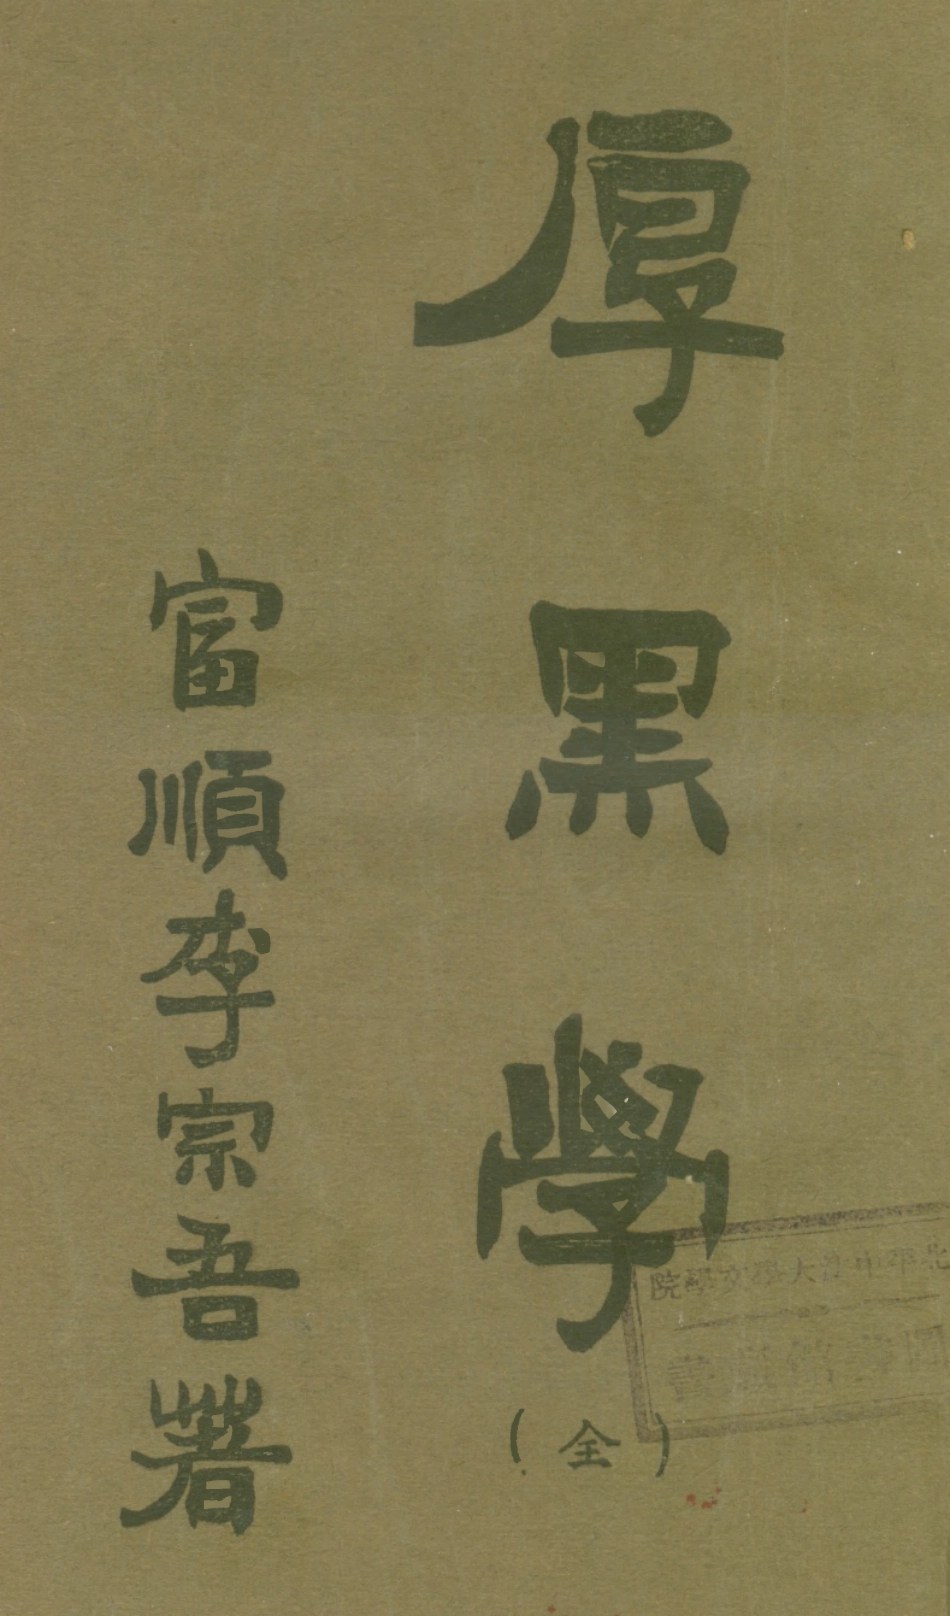 厚黑學
(全)
富順李宗吾著
北平中法大學文學院